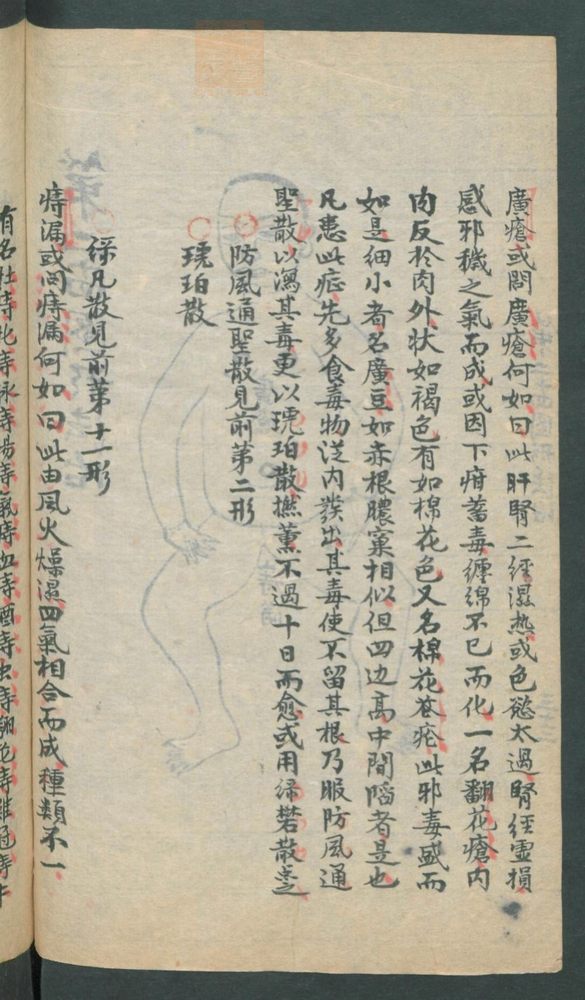 廣瘡或問廣瘡何如曰此肝腎二經濕热或色慾太過腎經虚損
感邪穢之氣而成或因下疳蓄毒纏綿不已而化一名翻花瘡内
肉反於肉外状如褐色有如棉花色又名棉花苍疮此邪毒盛而
如是细小者名廣豆如赤根膿窠相似但四边高中間陷者是也
凡患此症先多食毒物從内發出其毒使不留其根乃服防風通
聖散以瀉其毒更以琥珀散撚薰不過十日而愈或用绿礬散
防風通聖散見前第二形
琥珀散
保凡散見前第十一形
痔漏或问痔漏何如曰此由风火燥濕四氣相合而成種類不一
有名牡痔牝痔脉痔腸痔氣痔血痔酒痔虫痔翻花痔雞冠痔